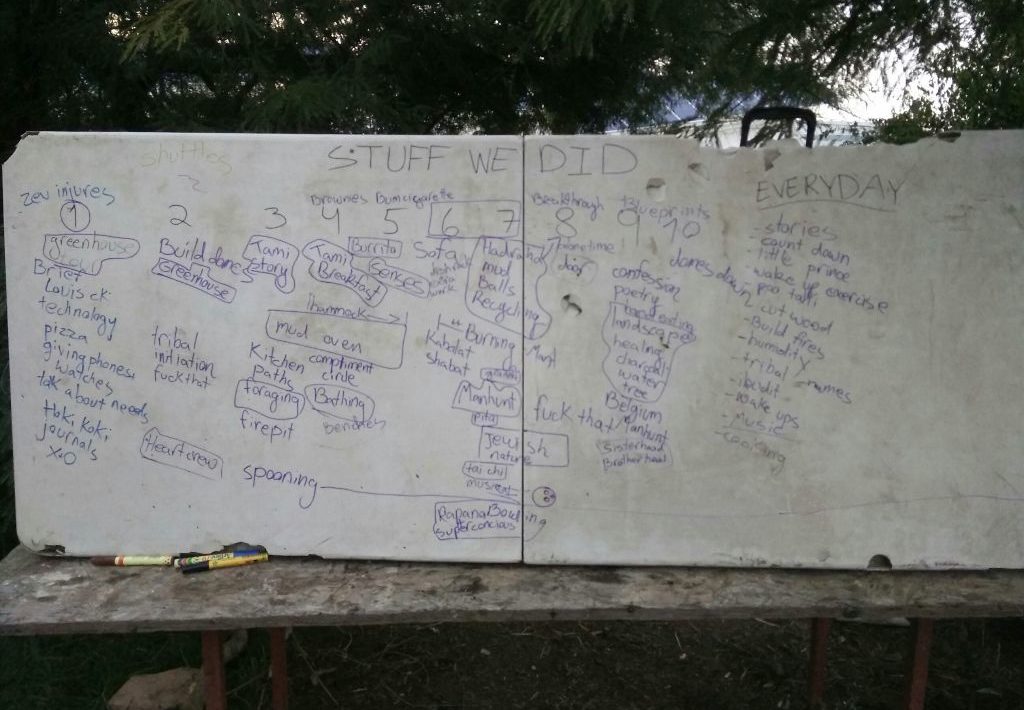 shuttles
STUFF WE DID
EVERYDAY
zev injures
1
greenhouse
Brief
Louis ck
technology
pizza
giving phones,
watches
talk about needs
Hoki Koki
journals
X.O
2
Build dome
Greenhouse
tribal
initiation
fuck that
Heart crew
3
Tami
story
Kitchen
paths
foraging
firepit
spooning
Brownies
4
Tami
Breakfast
hammock
mud oven
compliment
circle
Bathing
benches
Bumcigarette
5
Burrito
Senses
6 7
Sofa
Hadracha
mud
Balls
Recycling
Burning
Man
Kabalat
shabat
Manhunt
pita
Jewish
nature
tai chi
Rapana Bowling
superconcious
Breakthrough
8
phonetime
fuck that
blueprints
9 10
domes down
confession
poetry
landscape
healing
charcoal
water
tree
Belgium
Manhunt
Sisterhead
Brotherhead
-stories
-count down
-little prince
-wake up exercise
-poo talk
-cut wood
-Build fires
-humidity
-tribal names
-wake ups
-Music
-cooking